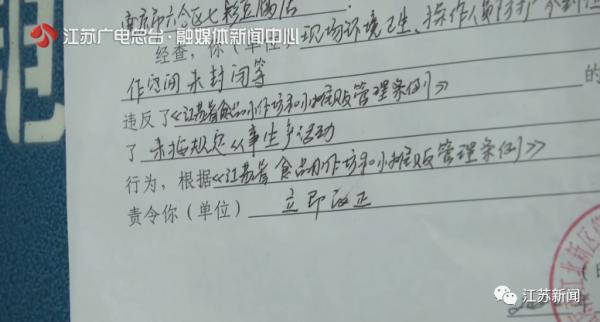 江苏广电总台·融媒体新闻中心
南京市六合区七彩豆腐店
经查，你（单位）现场环境卫生、操作人员防护不到位
作空间未封闭等
违反了《江苏省食品小作坊和小摊贩管理条例》的
了未按规定从事生产活动
行为，根据《江苏省食品小作坊和小摊贩管理条例》
责令你（单位）立即改正
江北新区
年
江苏新闻